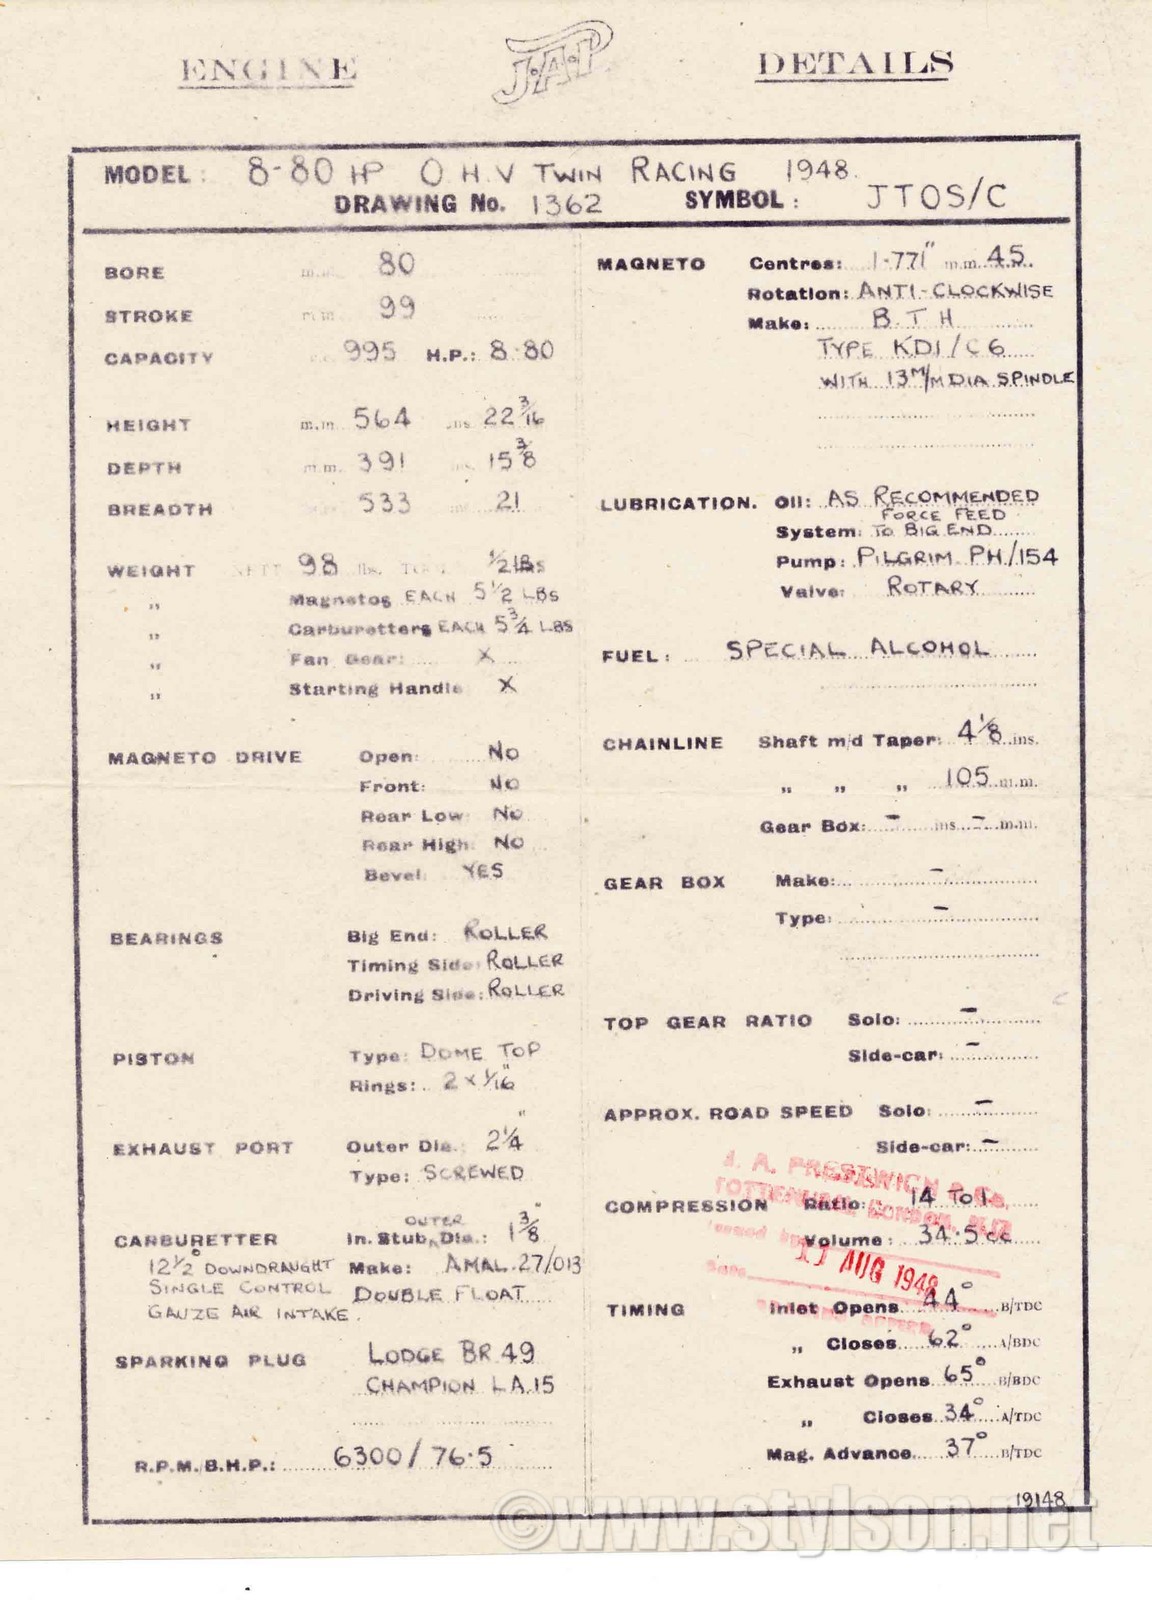 ENGINE J·A·P DETAILS
MODEL: 8-80 HP O H V TWIN RACING 1948.
DRAWING No. 1362 SYMBOL: JTOS/C
BORE m.m. 80
STROKE m.m. 99
CAPACITY 995 H.P.: 8·80
HEIGHT m.m. 564 ins. 22 3/16
DEPTH m.m. 391 ins. 15 3/8
BREADTH 533 21
WEIGHT NETT 98 lbs. 1/2 LBS
„ Magnetos EACH 5 1/2 LBS
„ Carburetters EACH 5 3/4 LBS
„ Fan Gear: X
„ Starting Handle X
MAGNETO DRIVE Open: NO
Front: NO
Rear Low: NO
Rear High: NO
Bevel: YES
BEARINGS Big End: ROLLER
Timing Side: ROLLER
Driving Side: ROLLER
PISTON Type: DOME TOP
Rings: 2 x 1/16"
EXHAUST PORT Outer Dia.: 2 1/4"
Type: SCREWED
CARBURETTER In. Stub OUTER Dia.: 1 3/8"
12 1/2° DOWNDRAUGHT Make: AMAL 27/013
SINGLE CONTROL DOUBLE FLOAT
GAUZE AIR INTAKE.
SPARKING PLUG LODGE BR 49
CHAMPION LA 15
R.P.M./B.H.P.: 6300/76·5
MAGNETO Centres: 1·771" m.m. 45
Rotation: ANTI-CLOCKWISE
Make: B.T.H
TYPE KD1/C6
WITH 13 M/M DIA SPINDLE
LUBRICATION. Oil: AS RECOMMENDED
FORCE FEED
System: TO BIG END
Pump: PILGRIM PH/154
Valve: ROTARY
FUEL: SPECIAL ALCOHOL
CHAINLINE Shaft m/d Taper: 4 1/8 ins.
„ „ „ 105 m.m.
Gear Box: - ins. - m.m.
GEAR BOX Make: -
Type: -
TOP GEAR RATIO Solo: -
Side-car: -
APPROX. ROAD SPEED Solo: -
Side-car: -
J. A. PRESTWICH & Co.
TOTTENHAM, LONDON, N.17
COMPRESSION Ratio: 14 TO 1
Issued by
Volume: 34·5 cc
11 AUG 1948
Date
TIMING Inlet Opens 44° B/TDC
„ Closes 62° A/BDC
Exhaust Opens 65° B/BDC
„ Closes 34° A/TDC
Mag. Advance 37° B/TDC
19148
©www.stylson.net